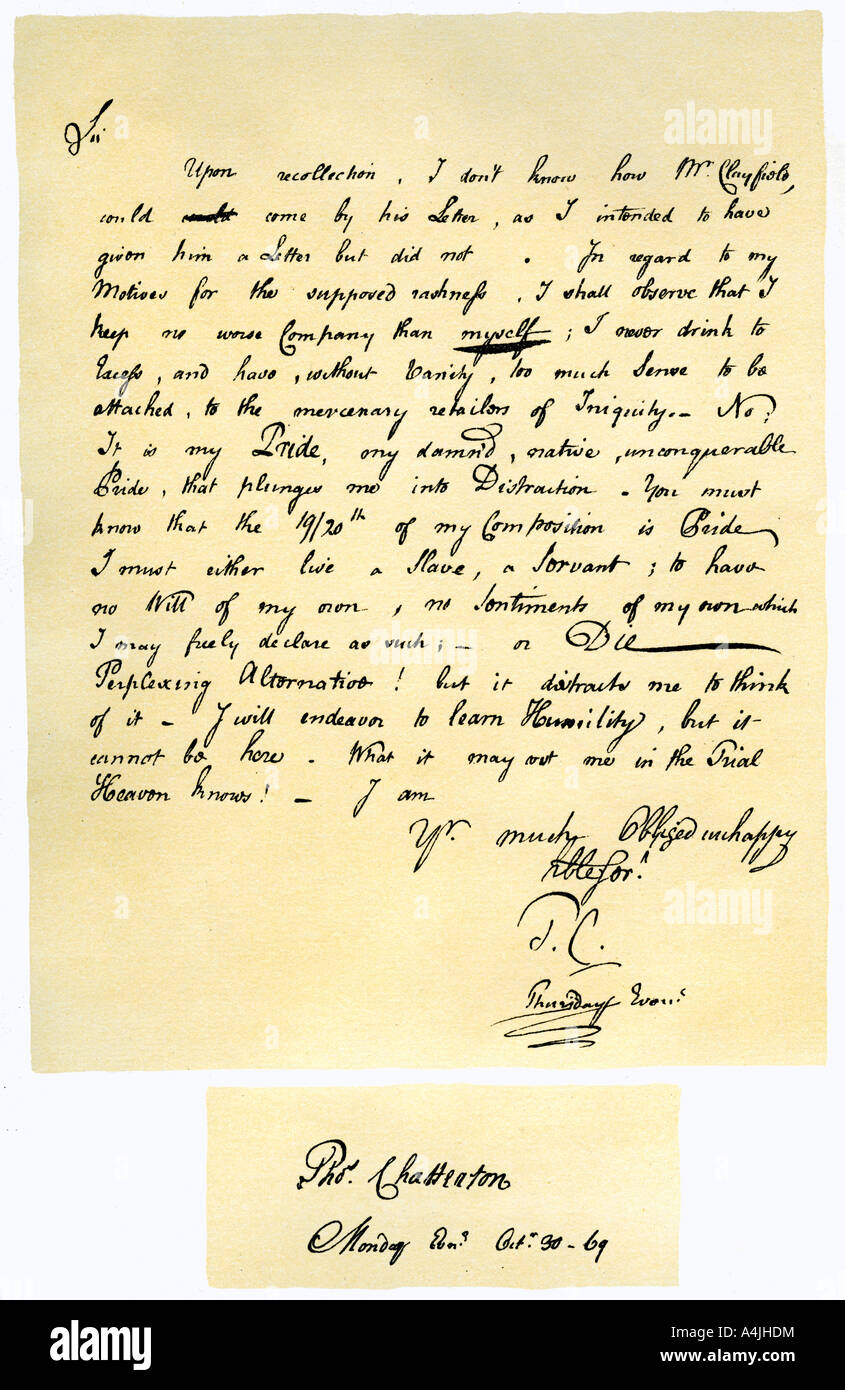 Sir
Upon recollection, I don't know how Mr. Clayfield,
could could come by his Letter, as I intended to have
given him a Letter but did not. In regard to my
Motives for the supposed rashness, I shall observe that I
keep no worse Company than myself; I never drink to
Excess, and have, without Vanity, too much Sense to be
attached, to the mercenary retailers of Iniquity. – No;
It is my Pride, my damn'd, native, unconquerable
Pride, that plunges me into Distraction. You must
know that the 19/20th of my Composition is Pride
I must either live a Slave, a Servant; to have
no Will of my own, no Sentiments of my own which
I may freely declare as such; – or Die
Perplexing Alternative! but it distracts me to think
of it – I will endeavor to learn Humility, but it
cannot be here. What it may cost me in the Trial
Heaven knows! – I am
Yr. much Obliged unhappy
Hble Ser.t
T. C.
Thursday Even.g
Thos. Chatterton
Monday Evn.g Octr. 30 – 69
alamy
a
alamy
A4JHDM
www.alamy.com